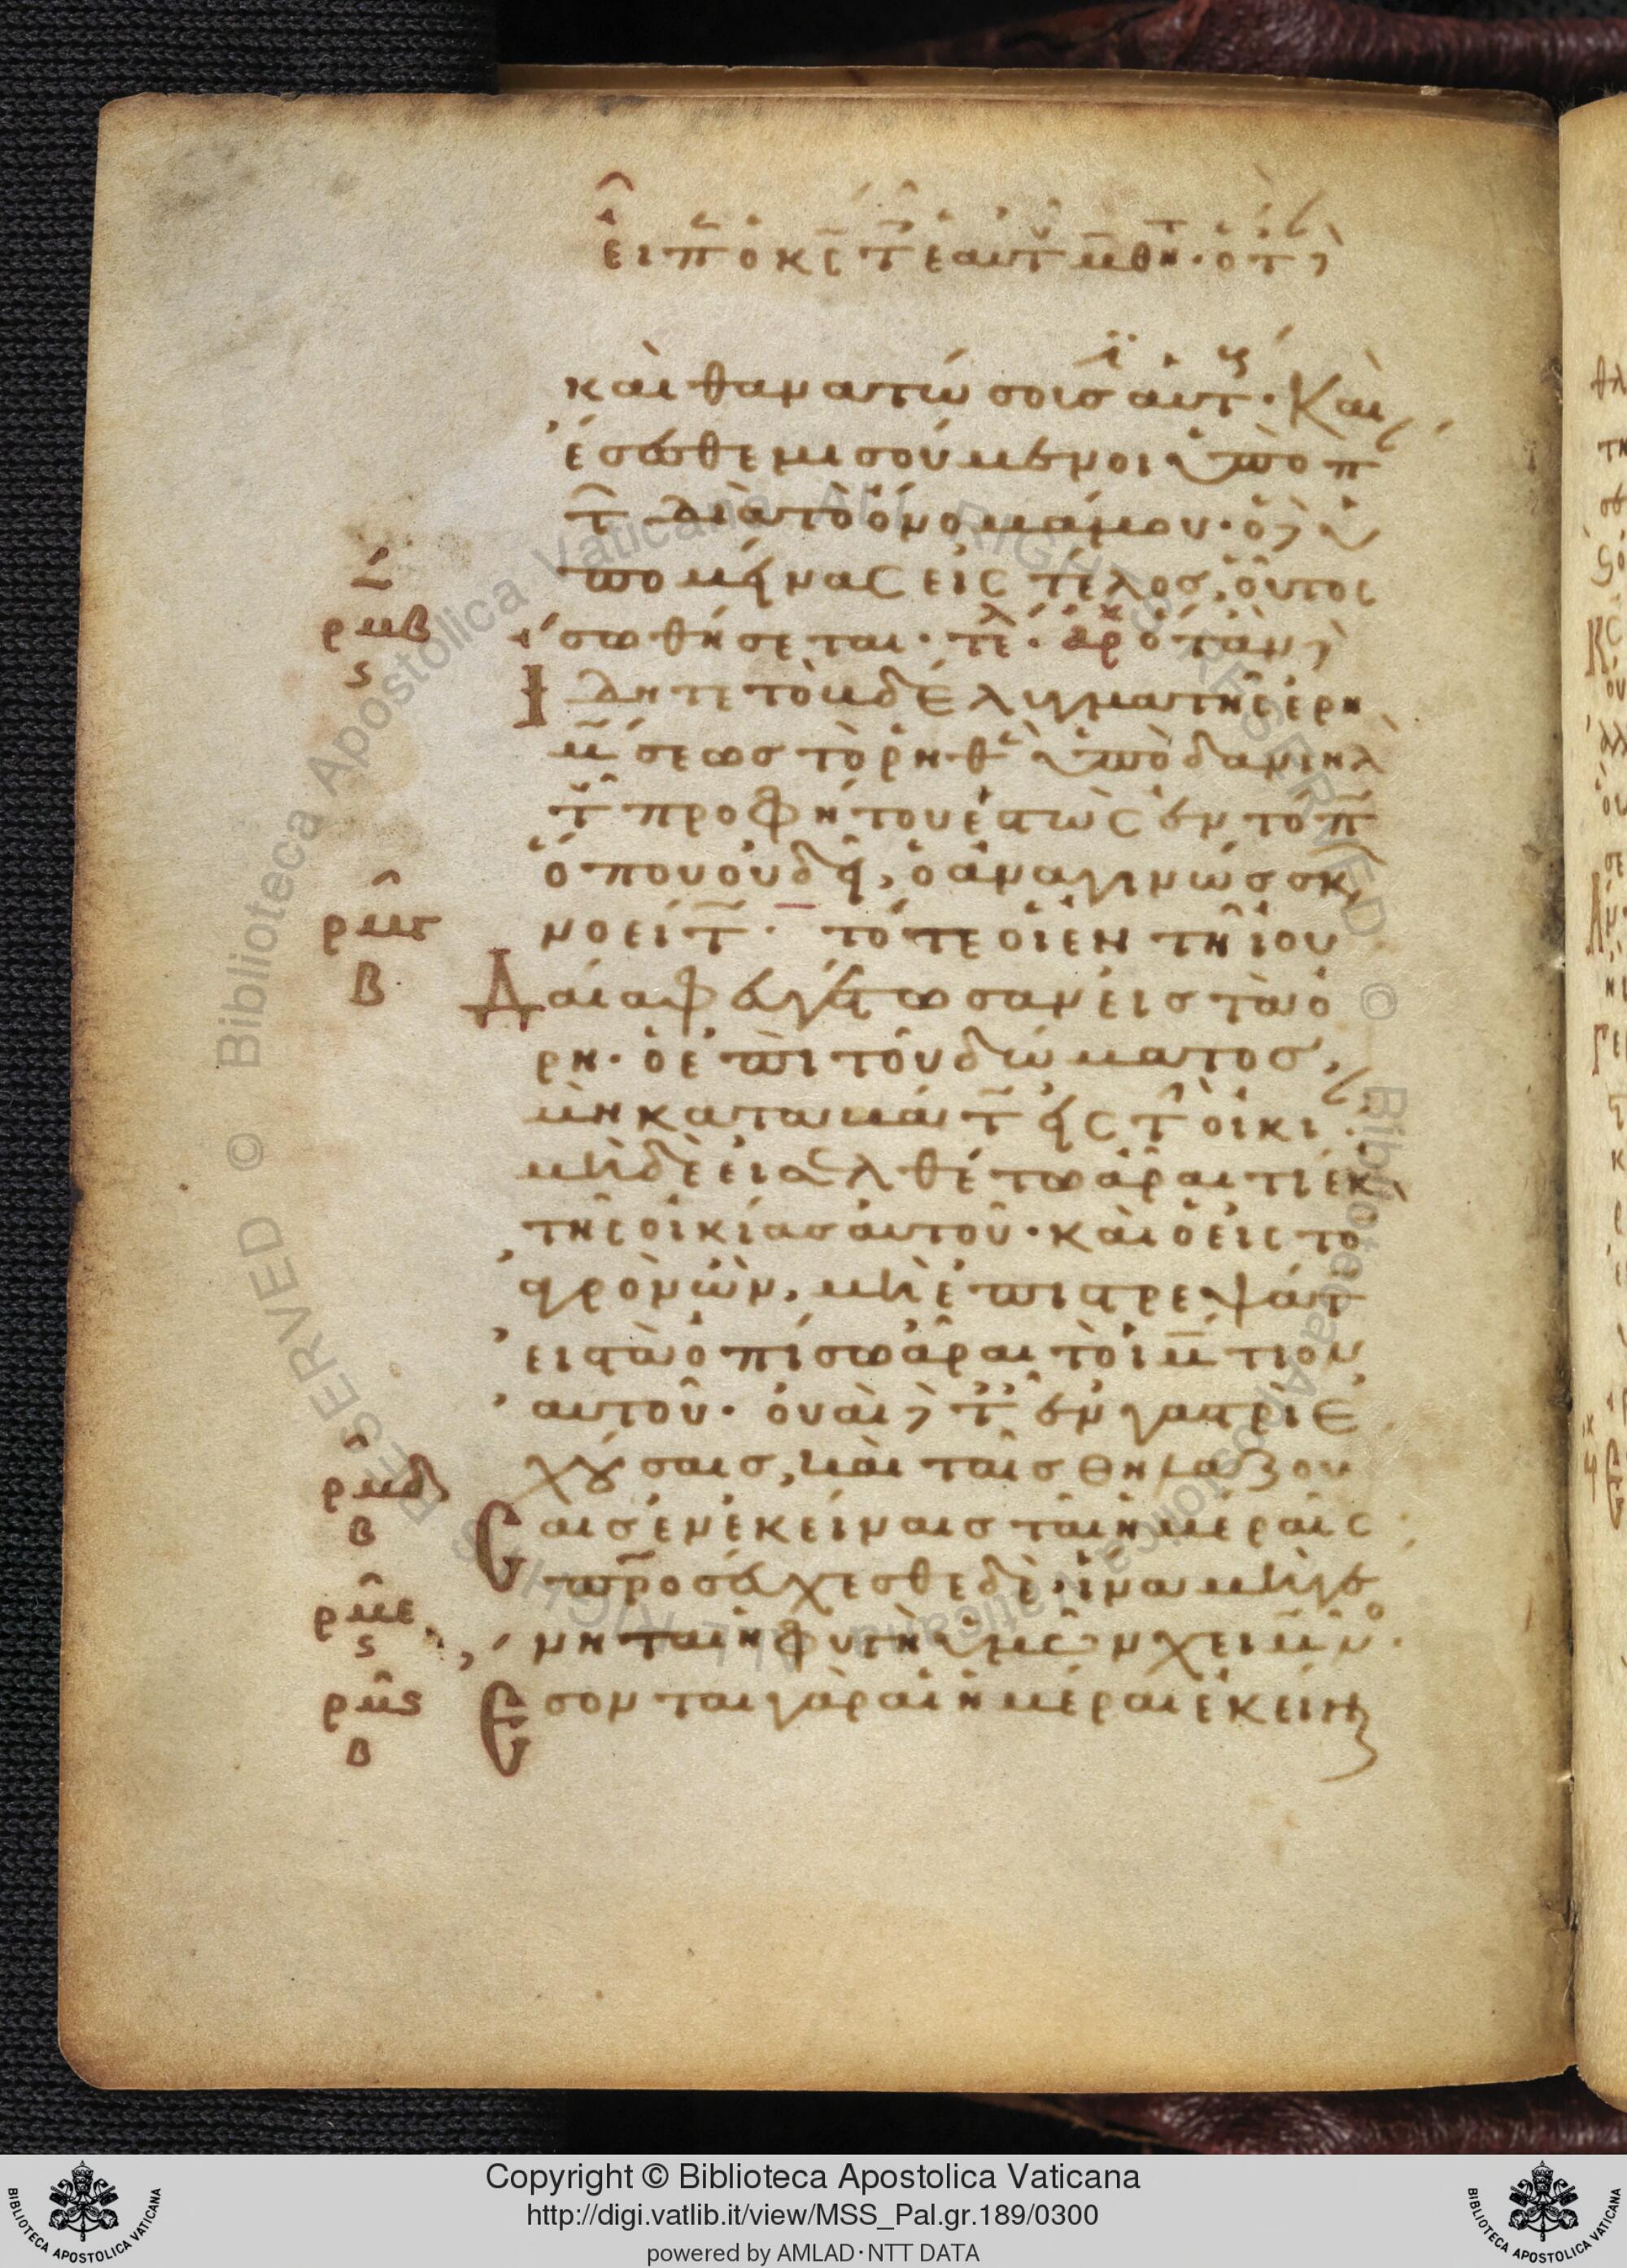 εἶπ ὁ κς τ ἑαυτ μθη· ὅτι
καὶ θανατώσουσ αὐτ· Καὶ
ἔσεσθε μισούμενοι ὑπὸ π
τ διὰ τὸ ὄνομά μου· ὁ δ ὑ
πομείνας εἰς τέλος, οὗτος
ρμβ
ς
σωθήσεται· τε· αρ ὅταν δ
Ἴδητε τὸ βδέλυγμα τῆς ἐρη
μ σεως τὸ ρηθ ὑπὸ δανιηλ
τ προφήτου ἑστὼς ἐν τόπ
ὅπου οὐ δεῖ, ὁ ἀναγινώσκ
ρμγ
νοείτ· τότε οἱ ἐν τῆ ἰου
Β
Δαία φευγέτωσαν εἰς τὰ ὄ
ρη· ὁ ἐπὶ τοῦ δώματος,
μὴ καταβάτ εἰς τ οἰκι·
μηδὲ εἰσελθέτω ἆραι τι ἐκ
τῆς οἰκίας αὐτοῦ· καὶ ὁ εἰς τὸ
ἀγρὸν ὢν, μὴ ἐπιστρεψάτ
εἰς τὰ ὀπίσω ἆραι τὸ ἱμ τιον
αὐτοῦ· οὐαὶ δ τ ἐν γαστρὶ ἐ
χούσαις, καὶ ταῖς θηλαζού
ρμδ
Β
Σαις ἐν ἐκείναις ταῖ ἡμέραις
Προσεύχεσθε δὲ· ἵνα μὴ γέ
ρμε
ς
νηται ἡ φυγὴ ὑμῶν χειμῶν·
ρμς
Β
Ἔσονται γὰρ αἱ ἡμέραι ἐκεῖναι
Copyright © Biblioteca Apostolica Vaticana
http://digi.vatlib.it/view/MSS_Pal.gr.189/0300
powered by AMLAD·NTT DATA
BIBLIOTECA APOSTOLICA VATICANA
BIBLIOTECA APOSTOLICA VATICANA